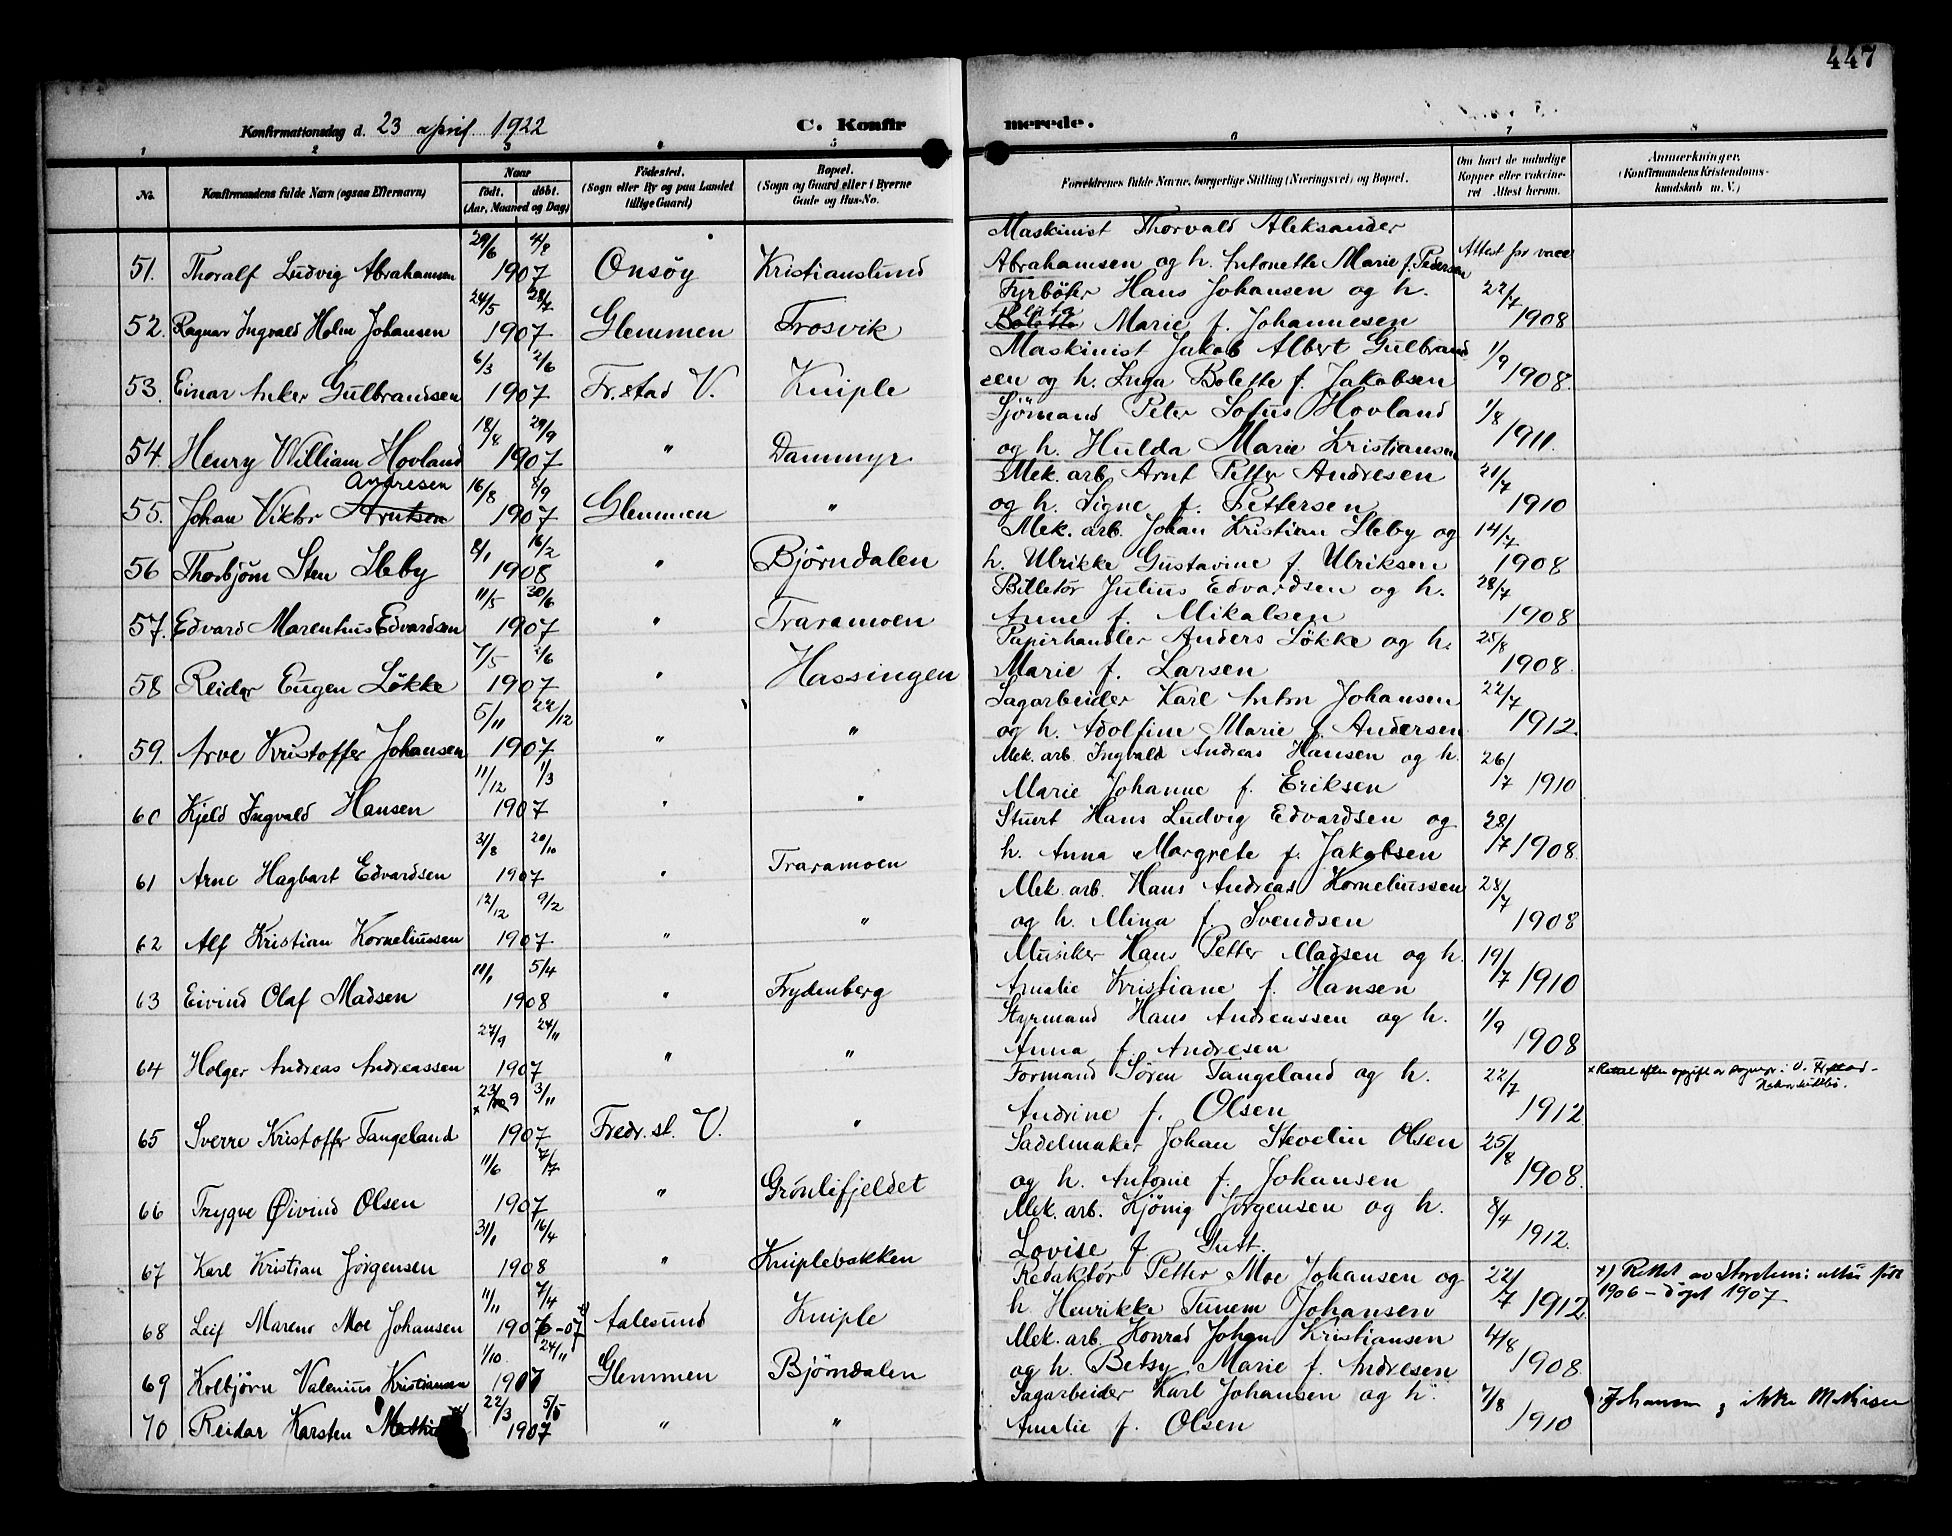 447
Konfirmationsdag d. 23 april 1922 C. Konfirmerede.
1 2 3 4 5 6 7 8
No. Konfirmandens fulde Navn (ogsaa Efternavn) Naar født. døbt. (Aar, Maaned og Dag) Fødested. (Sogn eller By og paa Landet tillige Gaard) Bopæl. (Sogn og Gaard eller i Byerne Gade og Hus-No. Forældrenes fulde Navne, borgerlige Stilling (Næringsvei) og Bopæl. Om havt de naturlige Kopper eller vaccineret. Attest herom. Anmærkninger. (Konfirmandens Kristendomskundskab m. V.)
Maskinist Thorvald Aleksander
51. Thoralf Ludvig Abrahamsen 29/6 4/8 1907 Onsøy Kristianslund Abrahamsen og h. Antonette Marie f. Pedersen Attest for vacc
Fyrbøter Hans Johansen og h. 22/7
52. Ragnar Ingvald Holm Johansen 24/5 28/7 1907 Glemmen Trosvik Bolette Marie f. Johannesen 1908
Maskinist Jakob Albert Gulbrand 1/9
53. Einar Anker Gulbrandsen 6/3 2/6 1907 Fr.stad V. Kniple sen og h. Inga Bolette f. Jakobsen 1908.
Sjømand Peter Sofus Hovland 1/8
54. Henry William Hovland 18/8 29/9 1907 " Dammyr og h. Hulda Marie Kristiansen 1911.
Andresen Mek. arb. Arnt Petter Andresen 21/7
55. Johan Viktor Arntsen 16/8 8/9 1907 Glemmen " og h. Signe f. Pettersen 1910
Mek. arb. Johan Kristian Sleby og 14/7
56 Thorbjørn Sten Sleby 8/1 16/2 1908 " Bjørndalen h. Ulrikke Gustavine f. Ulriksen 1908
Billetør Julius Edvardsen og h. 28/7
57. Edvard Marenhus Edvardsen 11/5 30/6 1907 " Traramoen Anne f. Mikalsen 1908
Papirhandler Anders Løkke og h. 25/8
58 Reidar Eugen Løkke 7/5 2/6 1907 " Hassingen Marie f. Larsen 1908.
Sagarbeider Karl Anton Johansen 22/7
59. Arve Kristoffer Johansen 5/11 22/12 1907 " " og h. Adolfine Marie f. Andersen 1912.
Mek. arb. Ingvald Andreas Hansen og h. 26/7
60 Kjeld Ingvald Hansen 11/12 1/3 1907 " " Marie Johanne f. Eriksen 1910
Stuert Hans Ludvig Edvardsen og 28/7
61 Arne Hagbart Edvardsen 31/8 20/10 1907 " Traramoen h. Anna Margrete f. Jakobsen 1908.
Mek. arb. Hans Andreas Korneliussen 28/7
62 Alf Kristian Korneliussen 12/12 9/2 1907. " " og h. Mina f. Svendsen 1908
Musiker Hans Petter Madsen og h. 19/7
63 Eivind Olaf Madsen 11/1 5/4 1908 " Frydenberg Amalie Kristiane f. Hansen 1910
Styrmand Hans Andreassen og h. 1/9
64 Holger Andreas Andreassen 27/9 24/11 1907 " " Anna f. Andresen 1908
Formand Søren Tangeland og h. 22/7 x Rettet efter opgift av sognepr. i V.
65 Sverre Kristoffer Tangeland x 23/9 3/11 1907 Fredr.st. V. " Andrine f. Olsen 1912
Sadelmaker Johan Stevelin Olsen 25/8
66 Trygve Øivind Olsen 11/6 7/7 1907 " Grønlifjeldet og h. Antonie f. Johansen 1908.
Mek. arb. Hjönig Jørgensen og h. 8/4
67 Karl Kristian Jørgensen 31/1 16/4 1908 " Kniplebakken Lovise f. Gutt. 1912.
Redaktør Petter Moe Johansen og 22/7 x) Rettet av
68 Leif Mareno Moe Johansen 11/11 7/4 1906-07 x) Aalesund Kniple h. Henrikke Tunem Johansen 1912. 1906 – døpt 1907
Mek. arb. Konrad Johan Kristiansen 4/8
69 Kolbjørn Valenius Kristiansen 1/10. 24/11 1907 Glemmen Bjørndalen og h. Betsy Marie f. Andresen 1908.
Sagarbeider Karl Johansen og h. 7/8 Johansen, ikke Mathisen
70 Reidar Karsten 22/3 5/5 1907 " " Amalie f. Olsen 1910